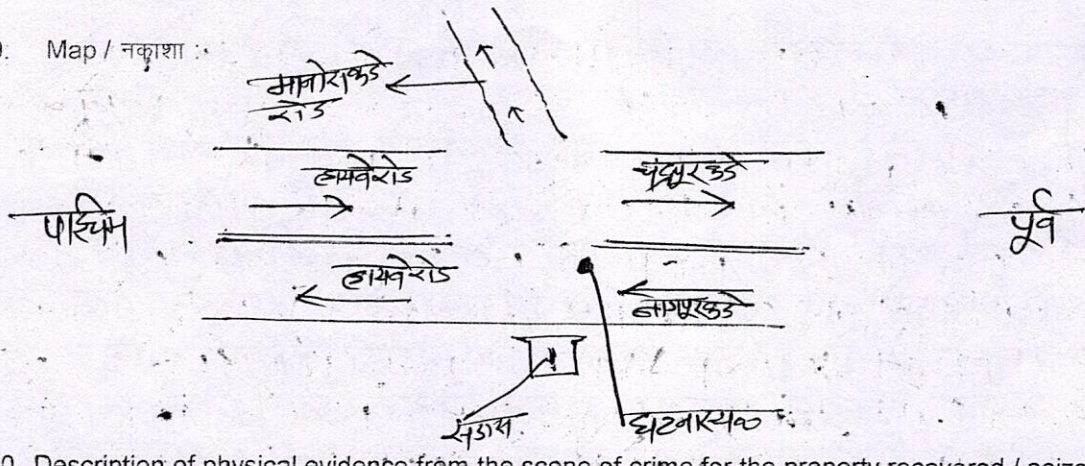 9. Map / नकाशा :-
मानोराकडे
रोड
हायवेरोड
चंद्रपूरकडे
पश्चिम
पूर्व
हायवेरोड
नागपूरकडे
संडास
घटनास्थळ
0. Description of physical evidence from the scene of crime for the property recovered /